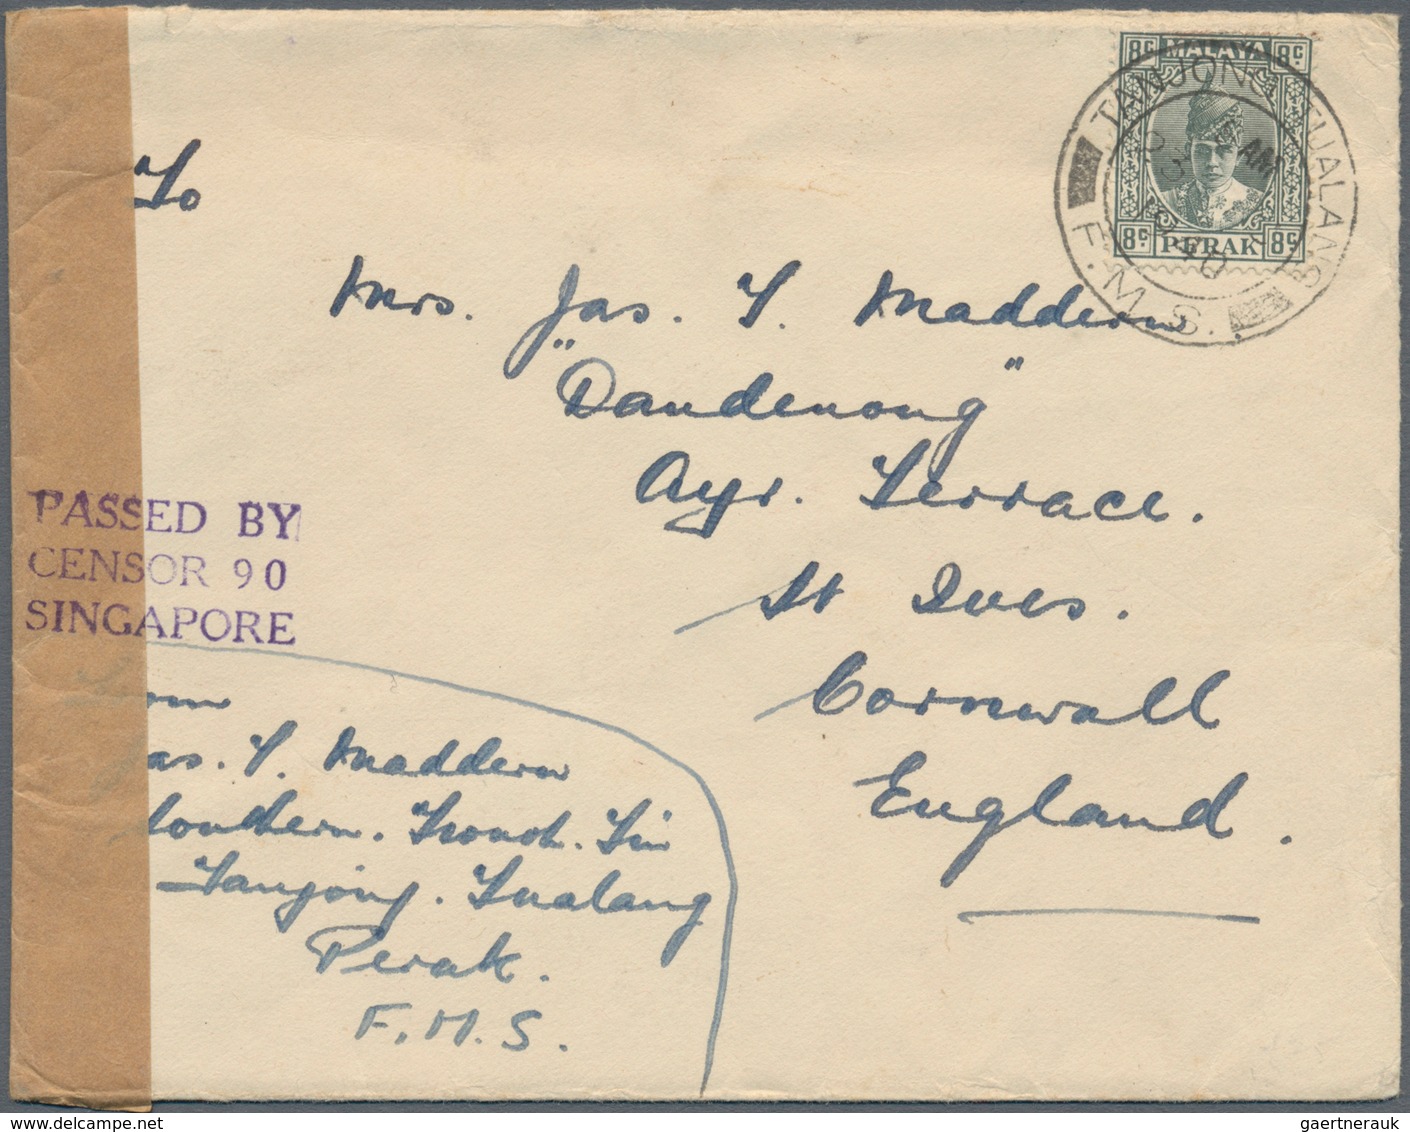 8c MALAYA 8c
8c PERAK 8c
TANJONG TUALANG
AM
F.M.S.
To
Mrs. Jas. T. Maddern
"Dandenong"
Ayr. Terrace.
St Ives.
Cornwall
England.
PASSED BY
CENSOR 90
SINGAPORE
From
Jas. T. Maddern
Southern. Tronoh. Tin
Tanjong. Tualang
Perak.
F.M.S.
gaertnerauk